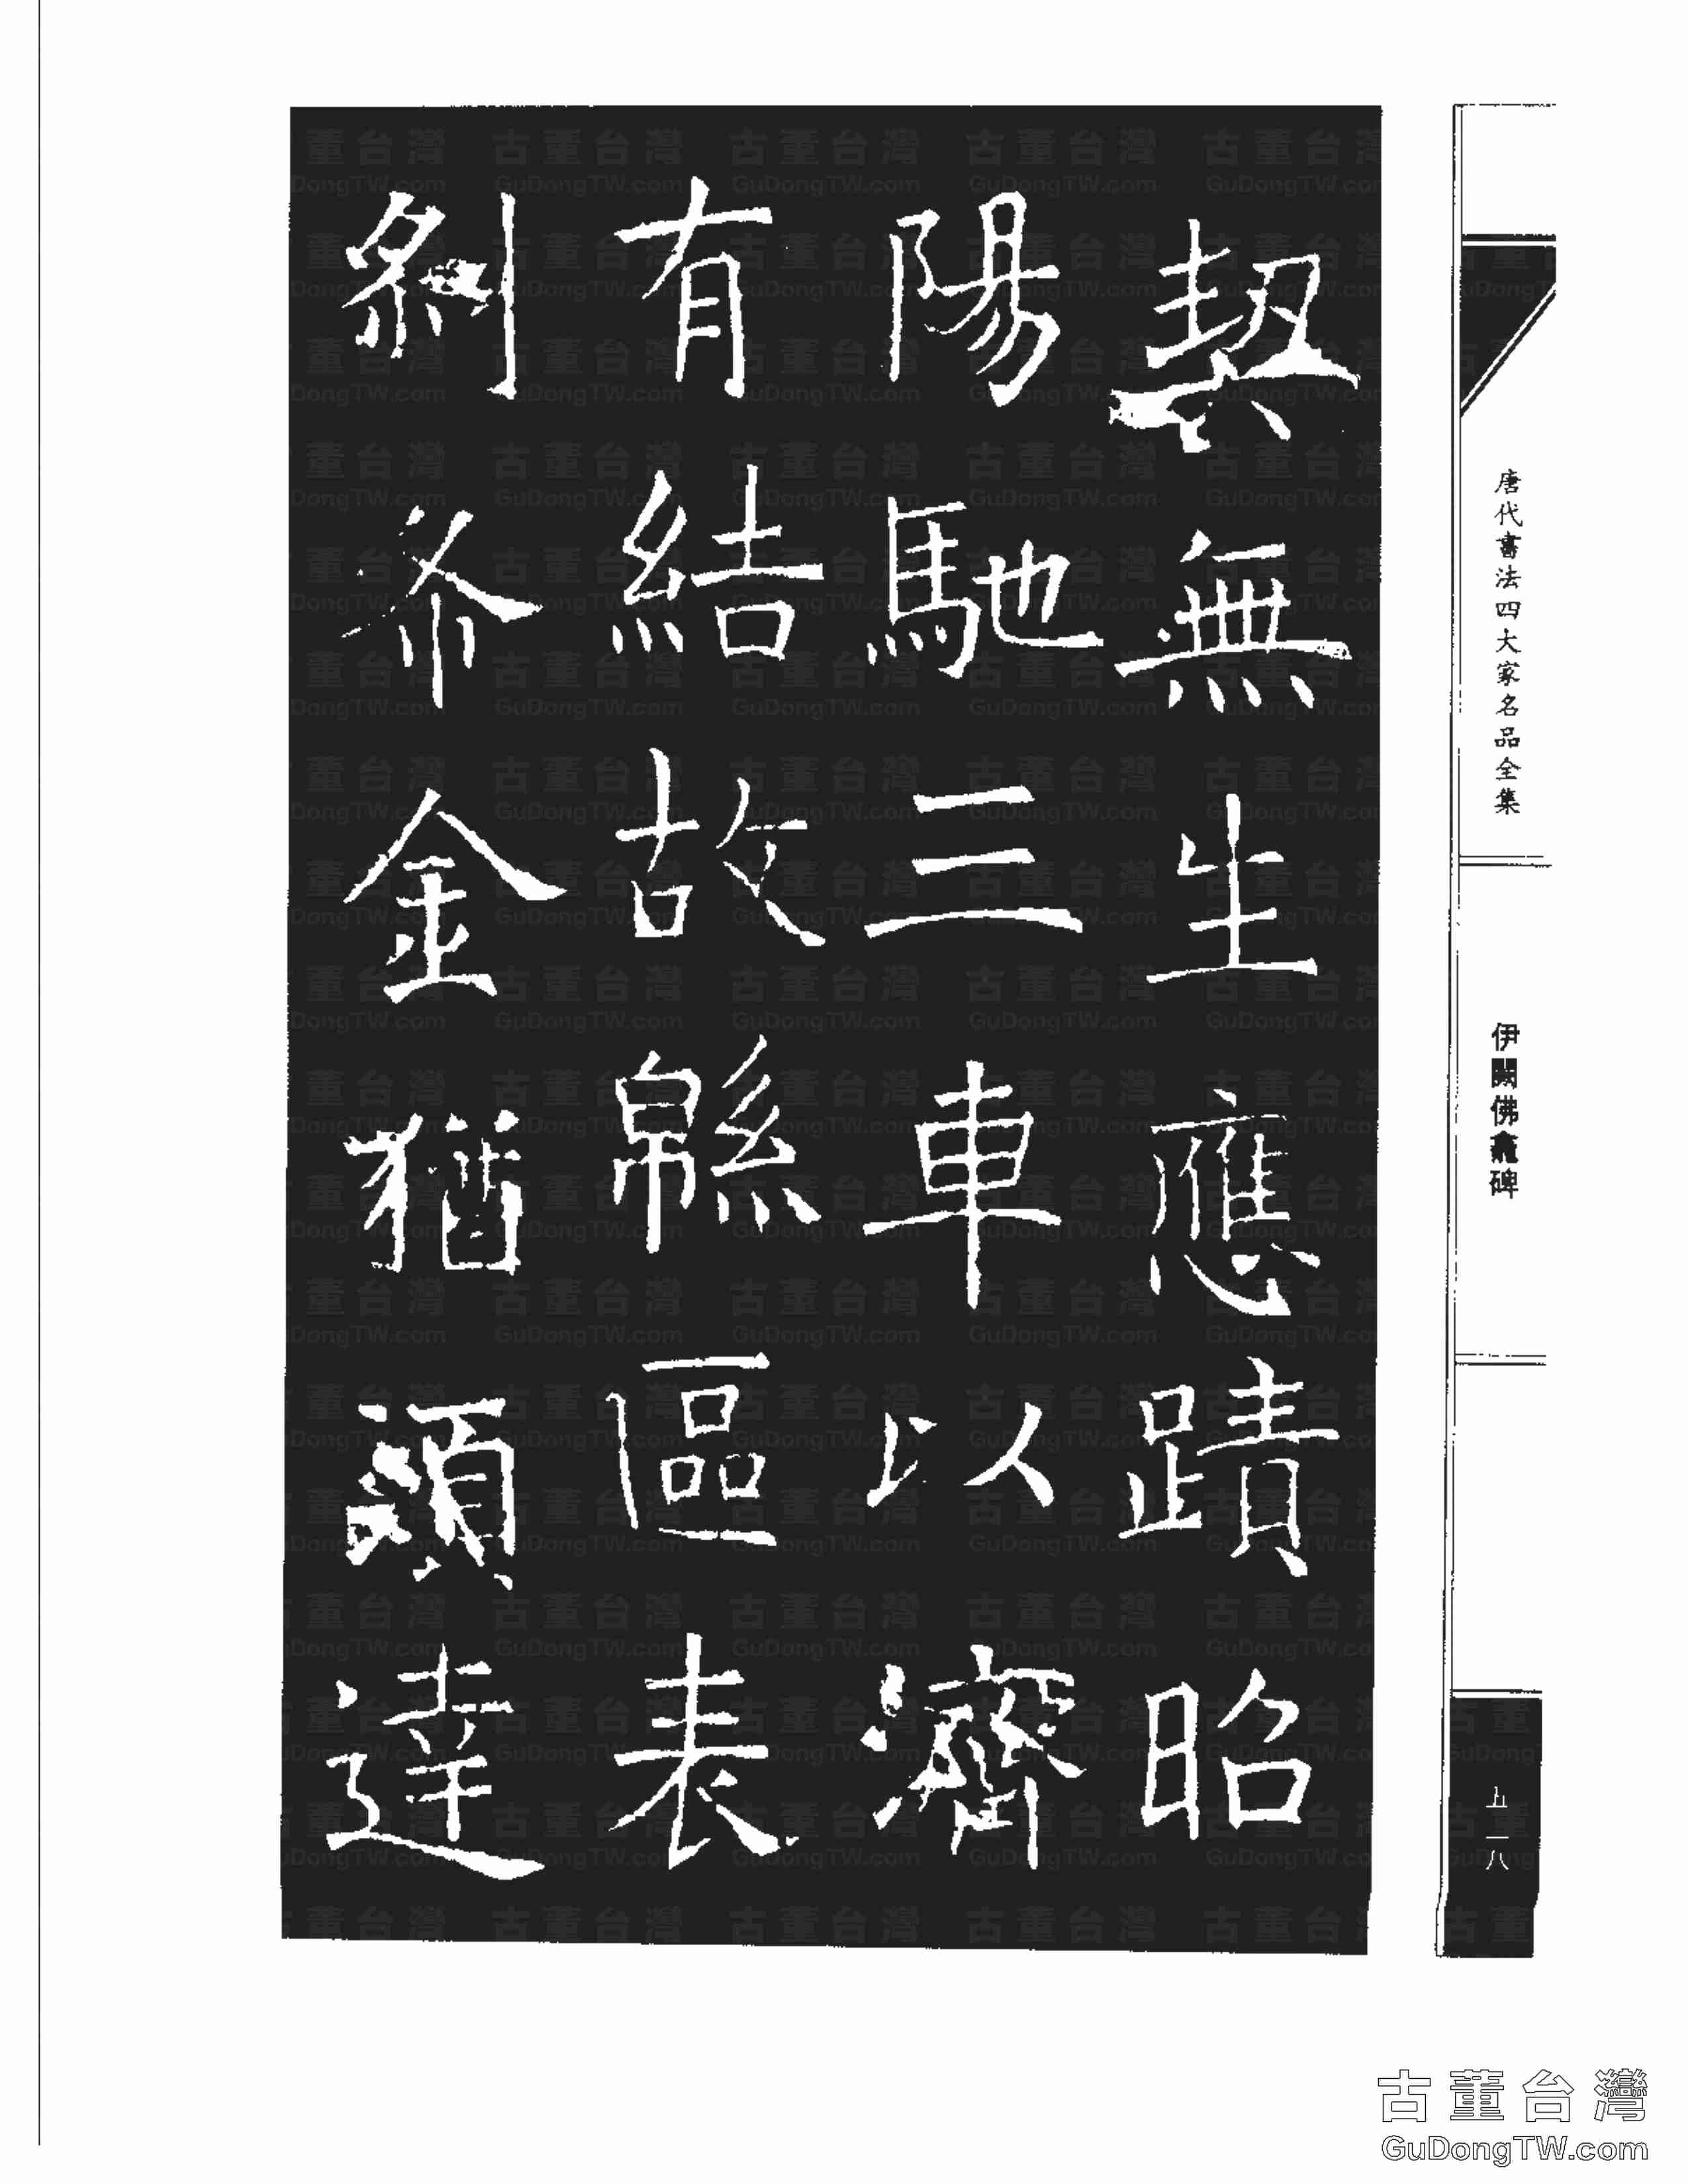 契無生應蹟昭
陽馳三車以濟
有結故緜區表
刹布金猶須達
唐代書法四大家名品全集
伊闕佛龕碑
五一八
古董台灣
GuDongTW.com